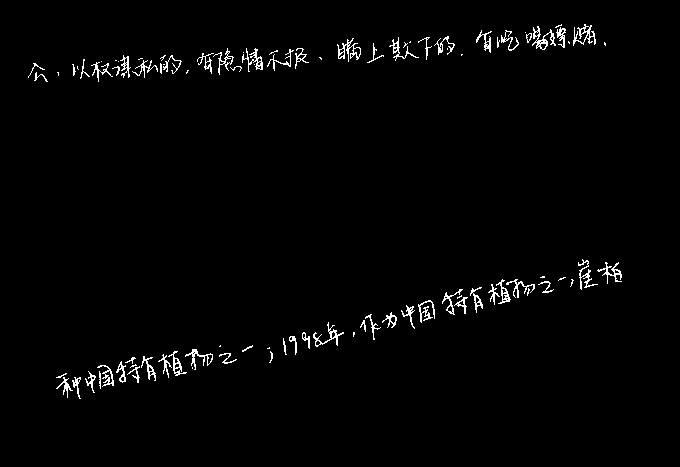 公、以权谋私的,有隐情不报、瞒上欺下的,有吃喝嫖赌、
种中国特有植物之一;1998年,作为中国特有植物之一,崖柏